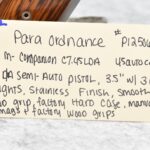 Para Ordnance # P1250
m- Companion C7.45LDA 45auto c
semi-Auto pistol, 3.5" w/ 3
ghts, Stainless Finish, Smooth
grip, factory Hard Case, manu
mags & factory wood grips